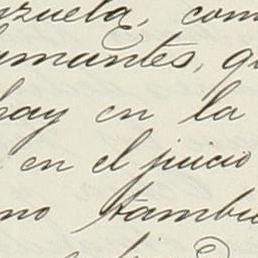 nzuela, com
amantes, q
hay en la
en el juicio
no tambie